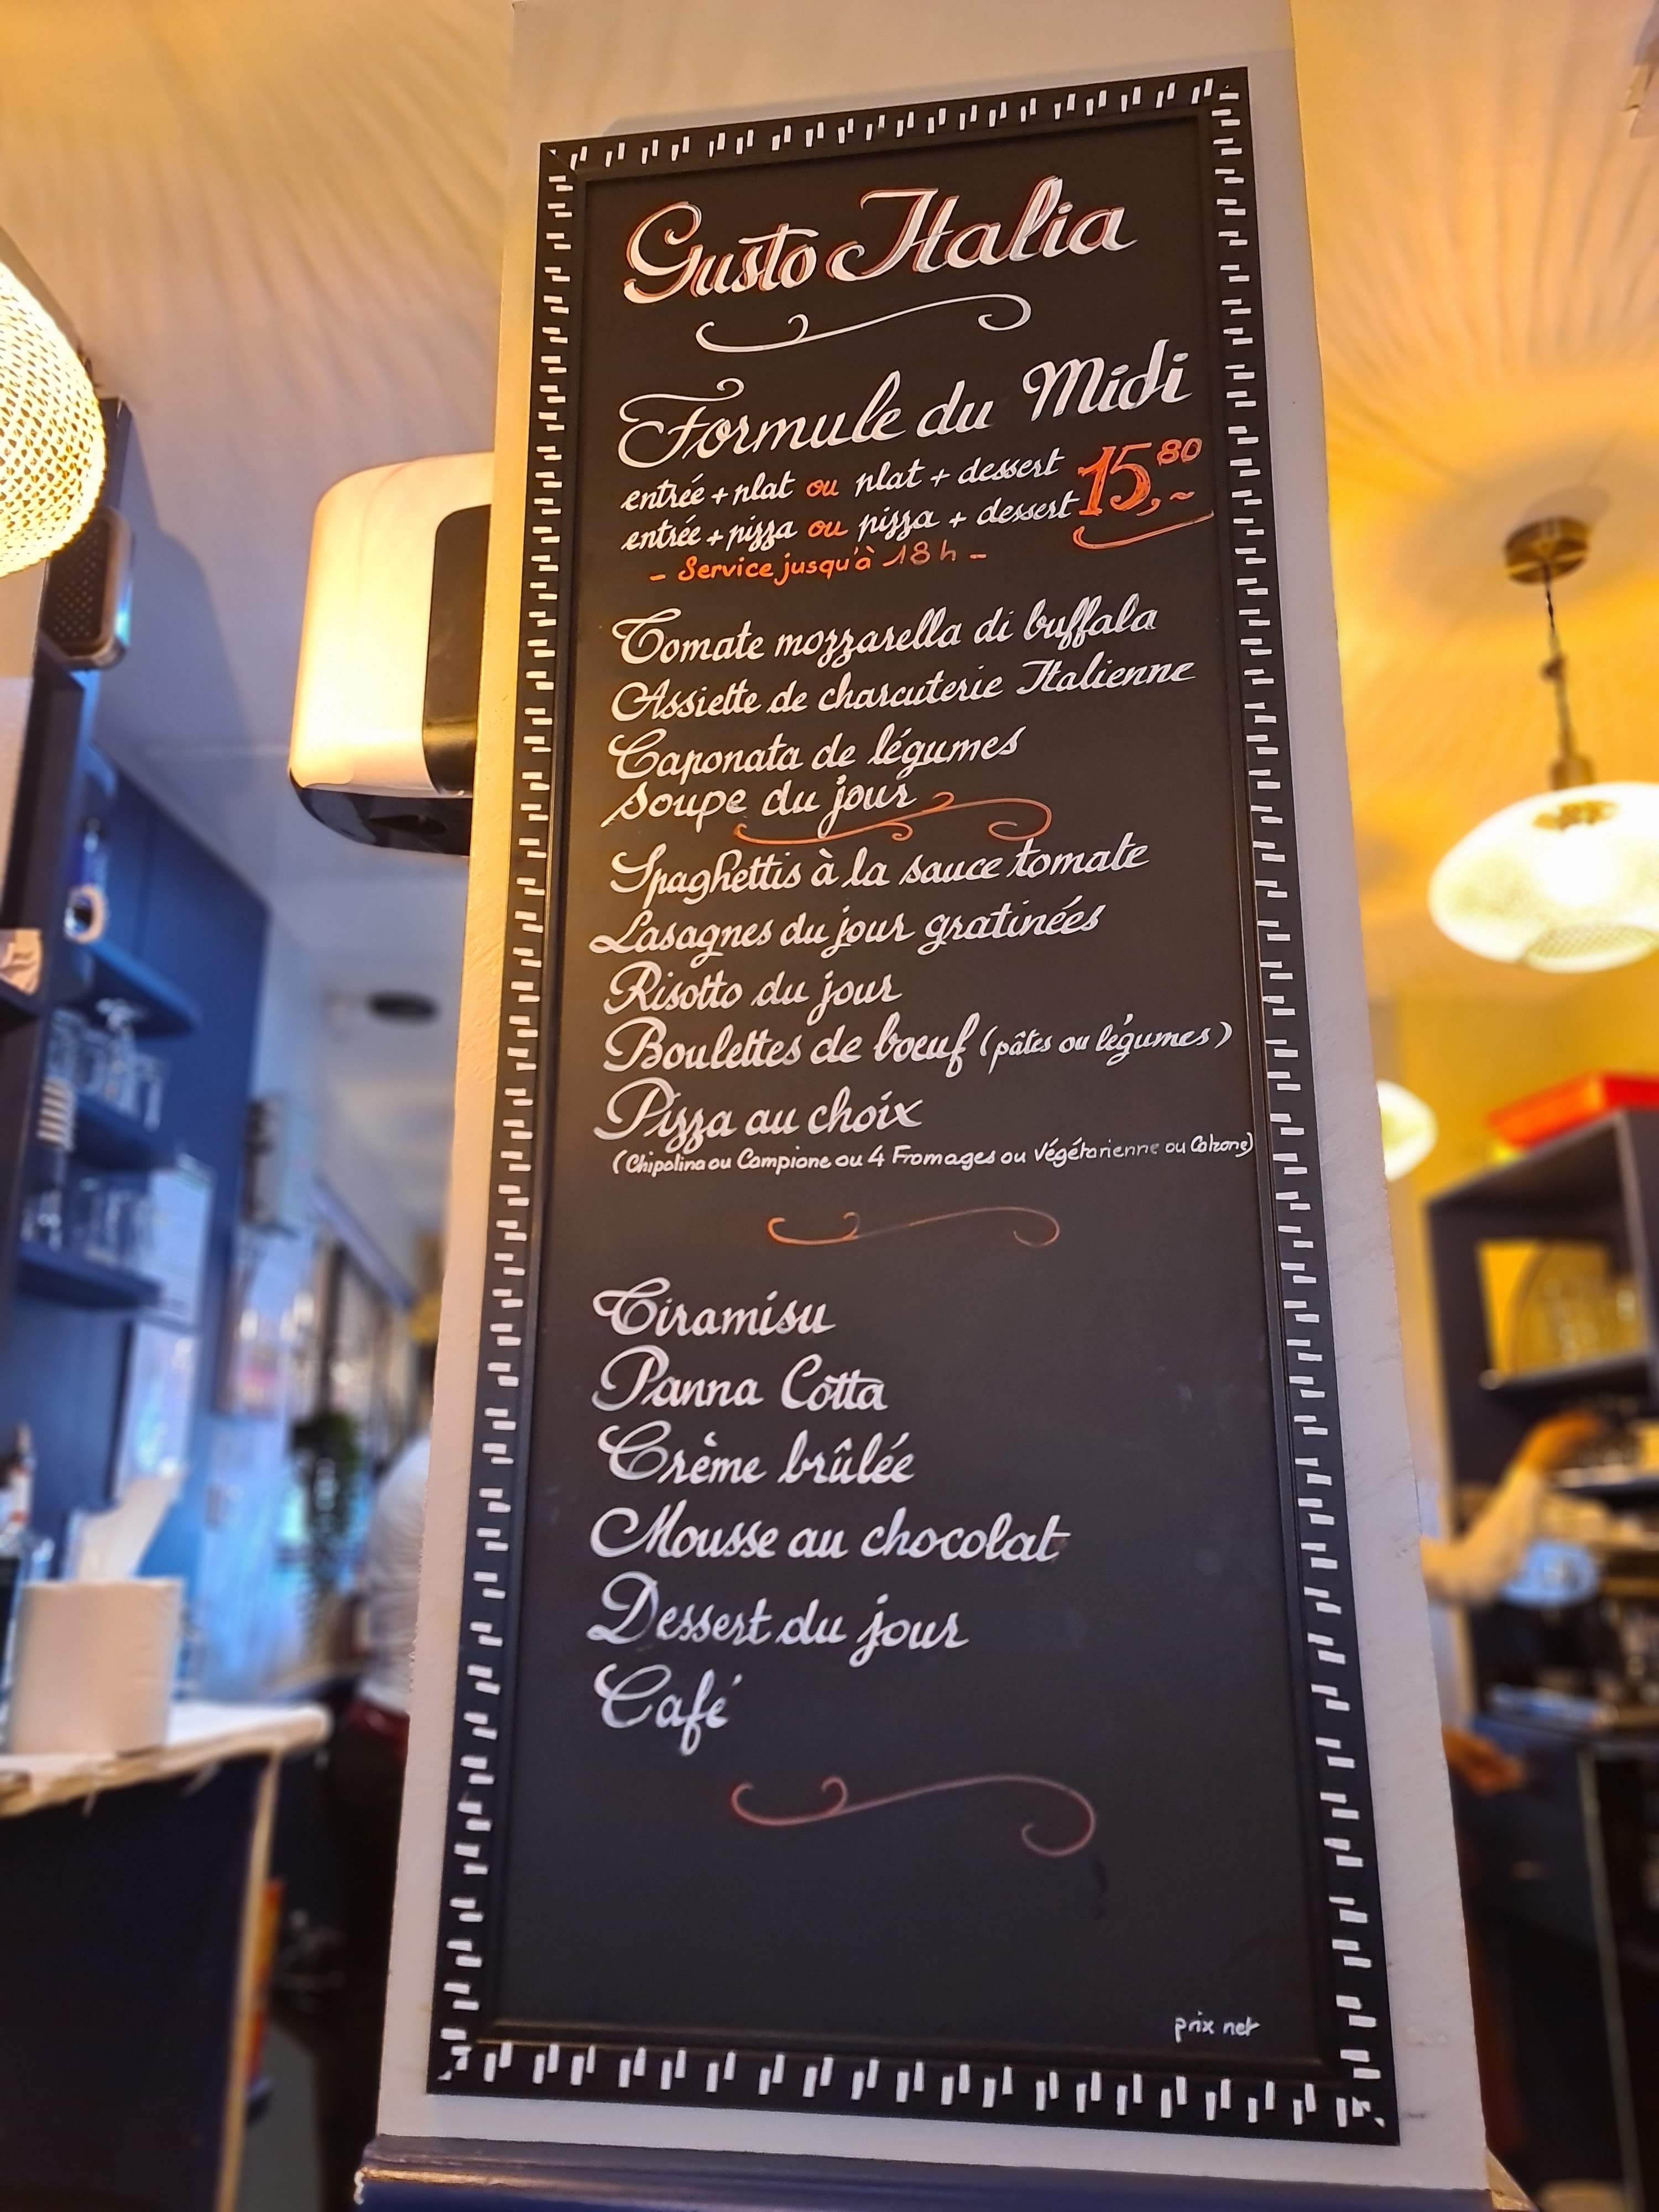 Gusto Italia
Formule du Midi
entrée + plat ou plat + dessert
15,80
entrée + pizza ou pizza + dessert
- Service jusqu'à 18h -
Tomate mozzarella di buffala
Assiette de charcuterie Italienne
Caponata de légumes
Soupe du jour
Spaghettis à la sauce tomate
Lasagnes du jour gratinées
Risotto du jour
Boulettes de bœuf (pâtes ou légumes)
Pizza au choix
(Chipolina ou Campione ou 4 Fromages ou Végétarienne ou Calzone)
Tiramisu
Panna Cotta
Crème brûlée
Mousse au chocolat
Dessert du jour
Café
prix net